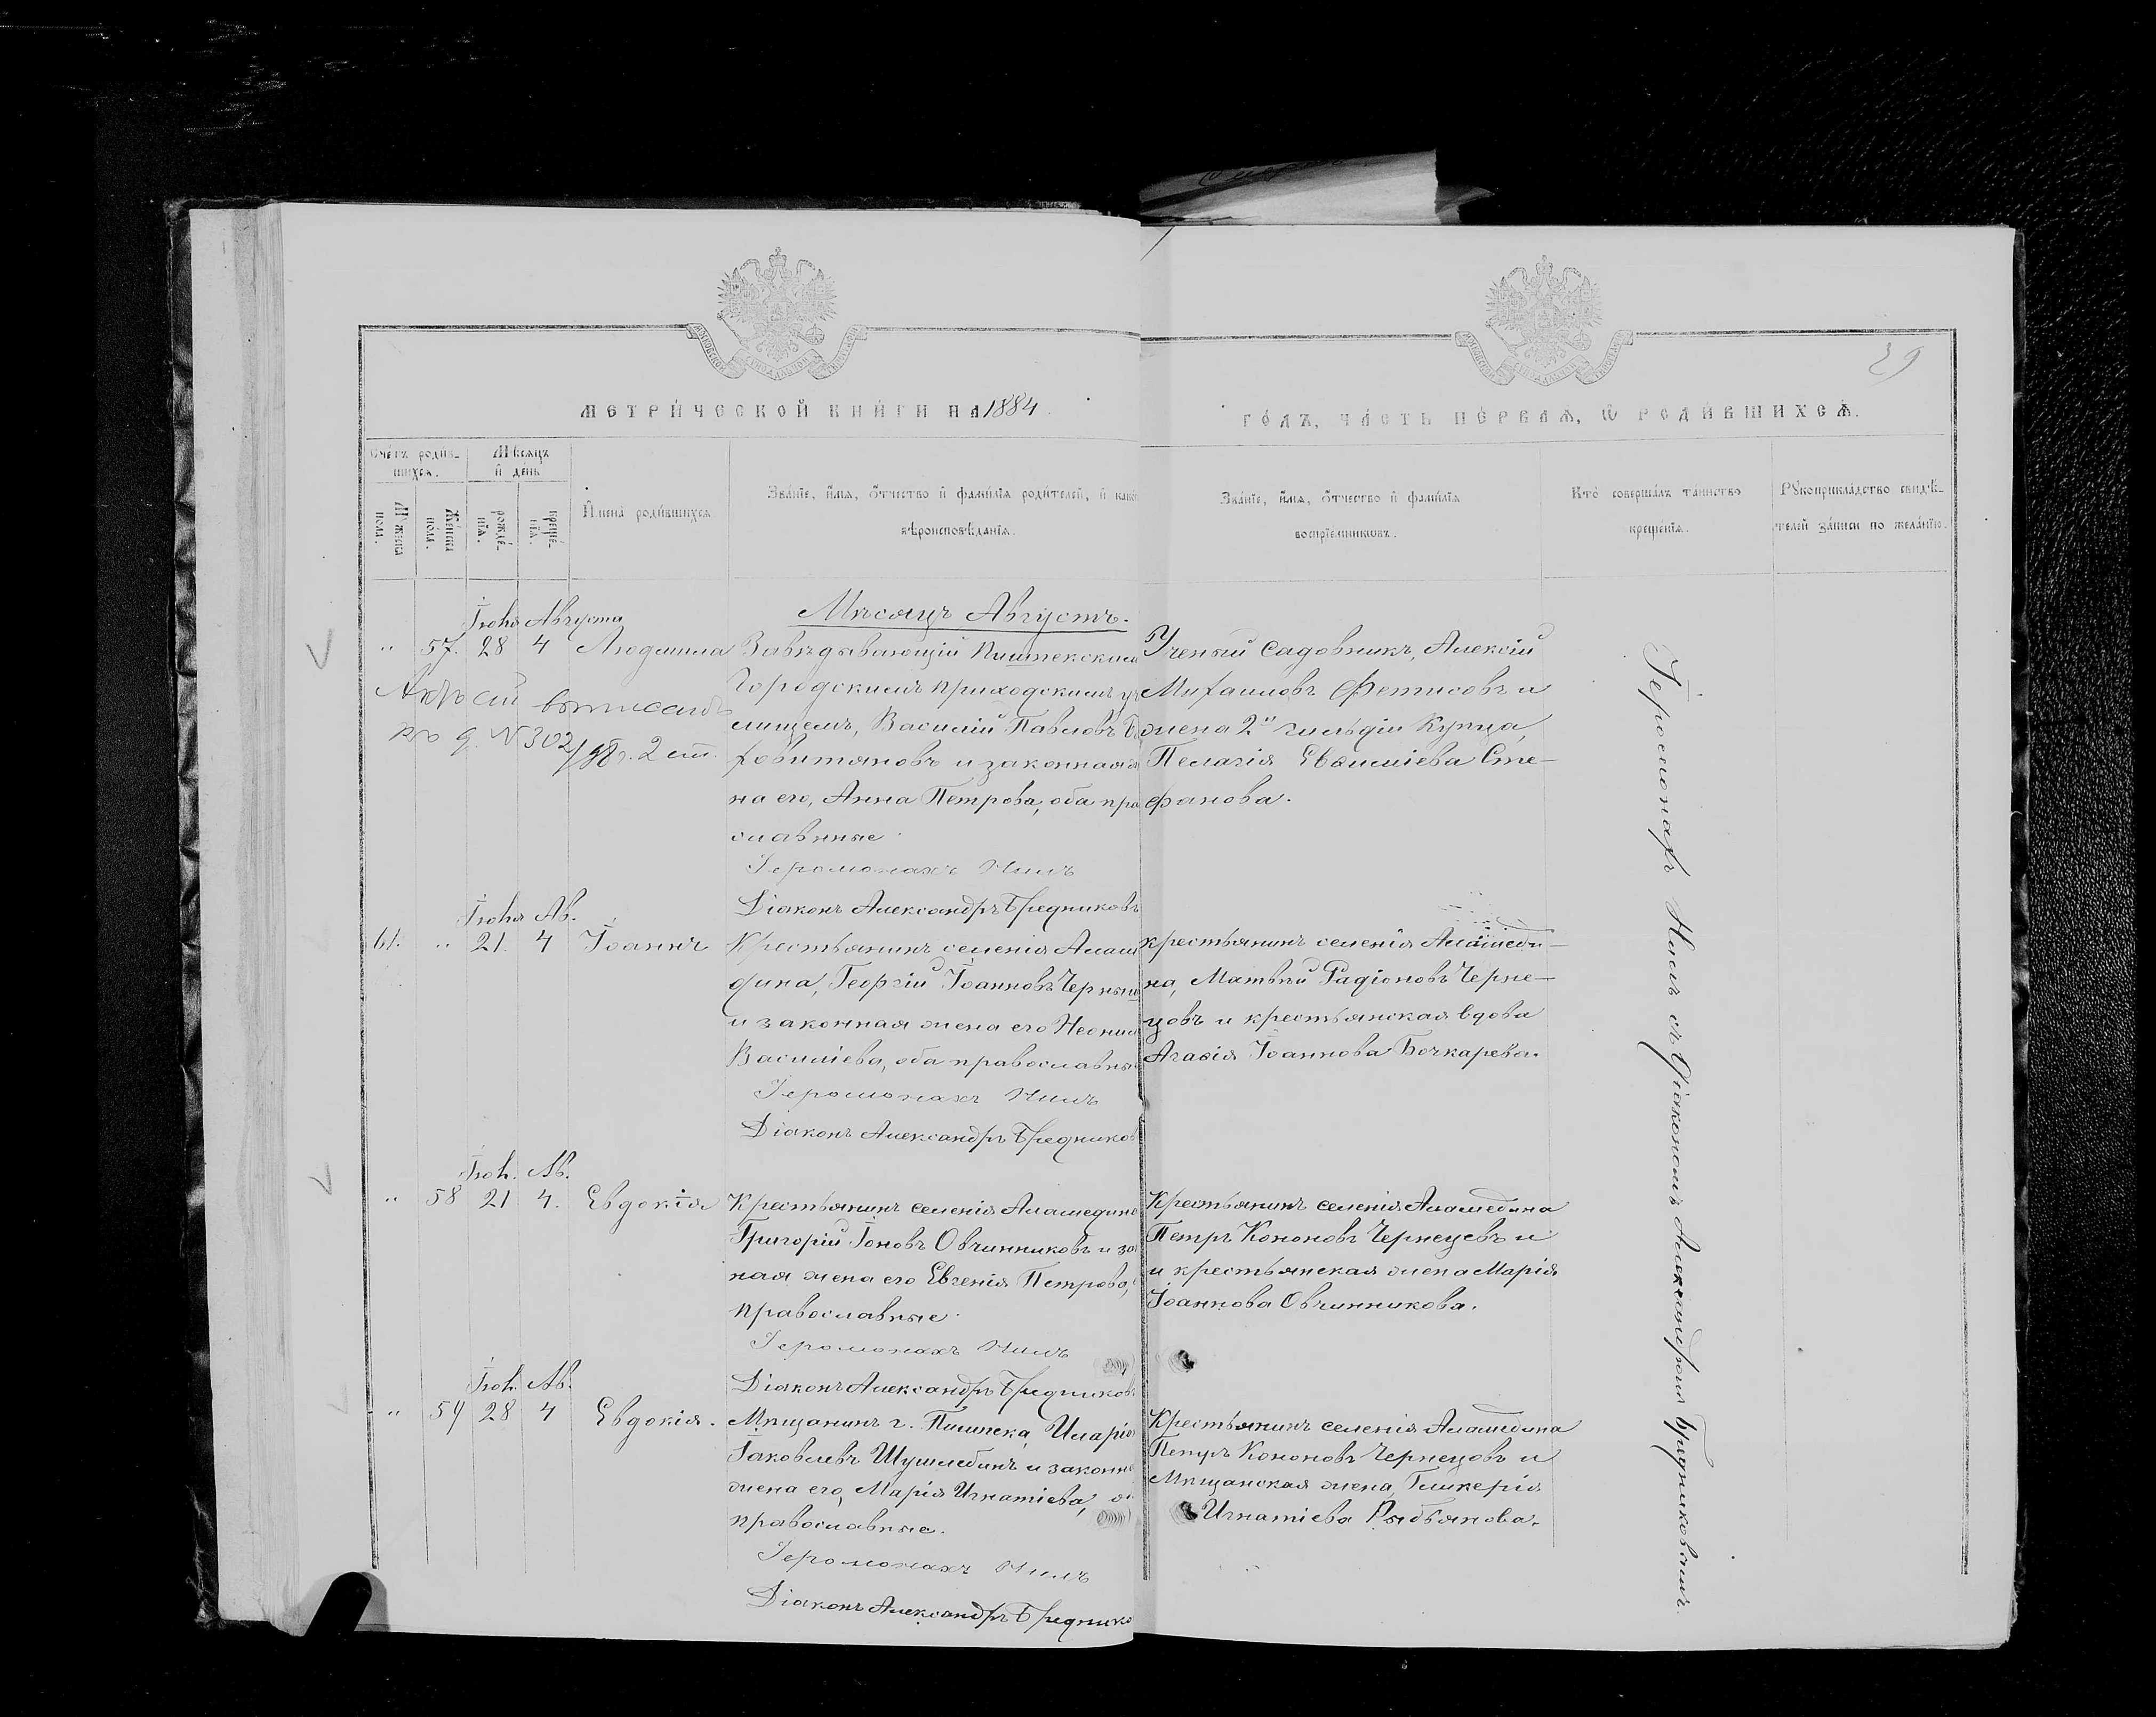 МЕТРИЧЕСКОЙ КНИГИ НА 1884
ГОДЪ, ЧАСТЬ ПЕРВАЯ, Ѿ РОДИВШИХСЯ.
29
Счетъ родив-
шихся.
Мѣсяцъ
и день
Мужеска
пола.
Женска
пола.
рожде-
нія.
креще-
нія.
Имена родившихся
Званіе, имя, отчество и фамилія родителей, и какого
вѣроисповѣданія.
Званіе, имя, отчество и фамилія
воспріемниковъ.
Кто совершалъ таинство
крещенія.
Рукоприкладство свидѣ-
телей записи по желанію.
Мѣсяцъ Августъ.
Іюля Августа
" 57. 28 4 Людмила
Завѣдывающій Пишпекским
Городскимъ приходскимъ у
лищемъ, Василій Павловъ
и законная
на его, Анна Петрова, оба пра
славныя
Іеромонахъ Нилъ
Діаконъ Александръ Бредниковъ
Ученый садовникъ, Алексій
Михаиловъ Фетисовъ и
жена 2й гильдіи Купца,
Пелагія Евѳиміева Сте-
фанова.
№ 302
Іюля Ав.
61. " 21. 4 Іоаннъ
Крестьянинъ селенія Алами
дина, Георгій Іоанновъ Черны
и законная жена его Неонил
Василіева, оба православны
Іеромонахъ Нилъ
Діаконъ Александръ Бредников
крестьянинъ селенія Аламеди-
на, Матвѣй Радіоновъ Черне-
цовъ и крестьянская вдова
Агаѳія Іоаннова Бочкарева.
Іюл. Ав.
" 58 21 4. Евдокія
Крестьянинъ селенія Аламедина
Григорій Іоновъ Овчинниковъ и за
ная жена его Евгенія Петрова,
православные.
Іеромонахъ Нилъ
Діаконъ Александръ Бредников
Крестьянинъ селенія Аламедина
Петръ Кононовъ Чернецевъ и
и крестьянская жена Марія
Іоаннова Овчинникова.
Іюл. Ав.
" 59 28 4 Евдокія.
Мѣщанинъ г. Пишпека, Иларіо
Іаковлевъ и законн
жена его, Марія Игнатіева,
православные.
Іеромонахъ Нилъ
Діаконъ Александръ Бреднико
Крестьянинъ селенія Аламедина
Петръ Кононовъ Чернецовъ и
Мѣщанская жена, Гликерія
Игнатіева
Іеромонахъ Нилъ съ Діакономъ Александромъ Бредниковымъ.